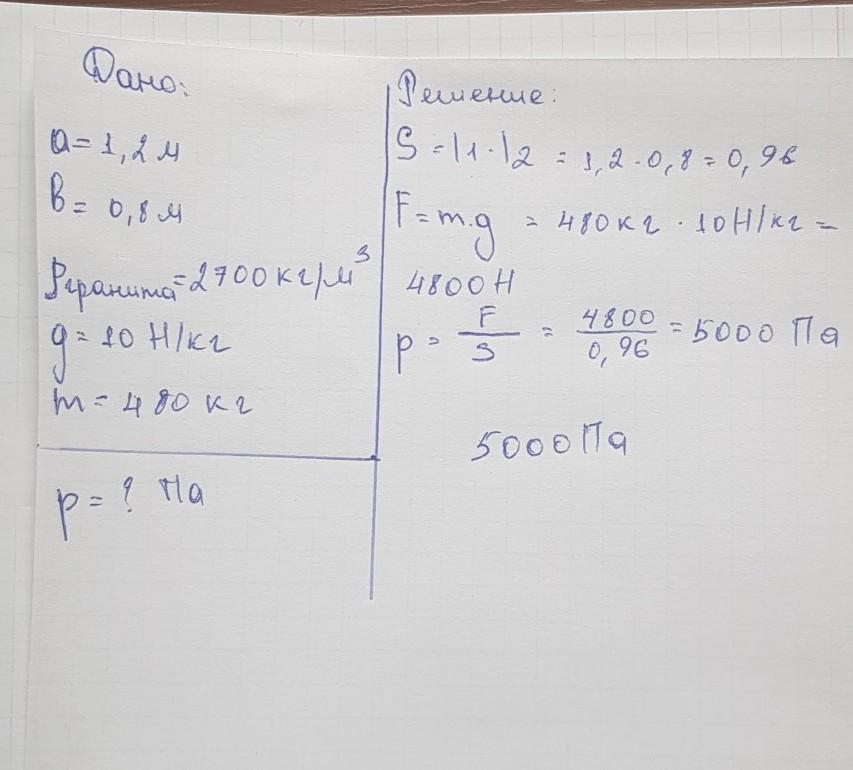 Дано:
a = 1,2 м
в = 0,8 м
ρгранита = 2700 кг/м³
g = 10 Н/кг
m = 480 кг
p = ? Па
Решение:
S = l1 · l2 = 1,2 · 0,8 = 0,96
F = m·g = 480 кг · 10 Н/кг =
4800 Н
p = F/S = 4800/0,96 = 5000 Па
5000 Па